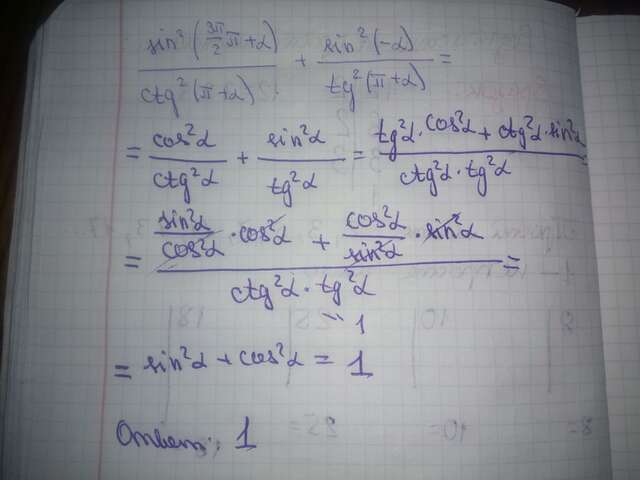 sin²(3π/2 π+α)/ctg²(π+α) + sin²(-α)/tg²(π+α) =
= cos²α/ctg²α + sin²α/tg²α = (tg²α · cos²α + ctg²α · sin²α)/(ctg²α · tg²α) =
= (sin²α/cos²α · cos²α + cos²α/sin²α · sin²α)/(ctg²α · tg²α) =
= 1
= sin²α + cos²α = 1
Ответ: 1
8 10 25 18
8= 10= 25=